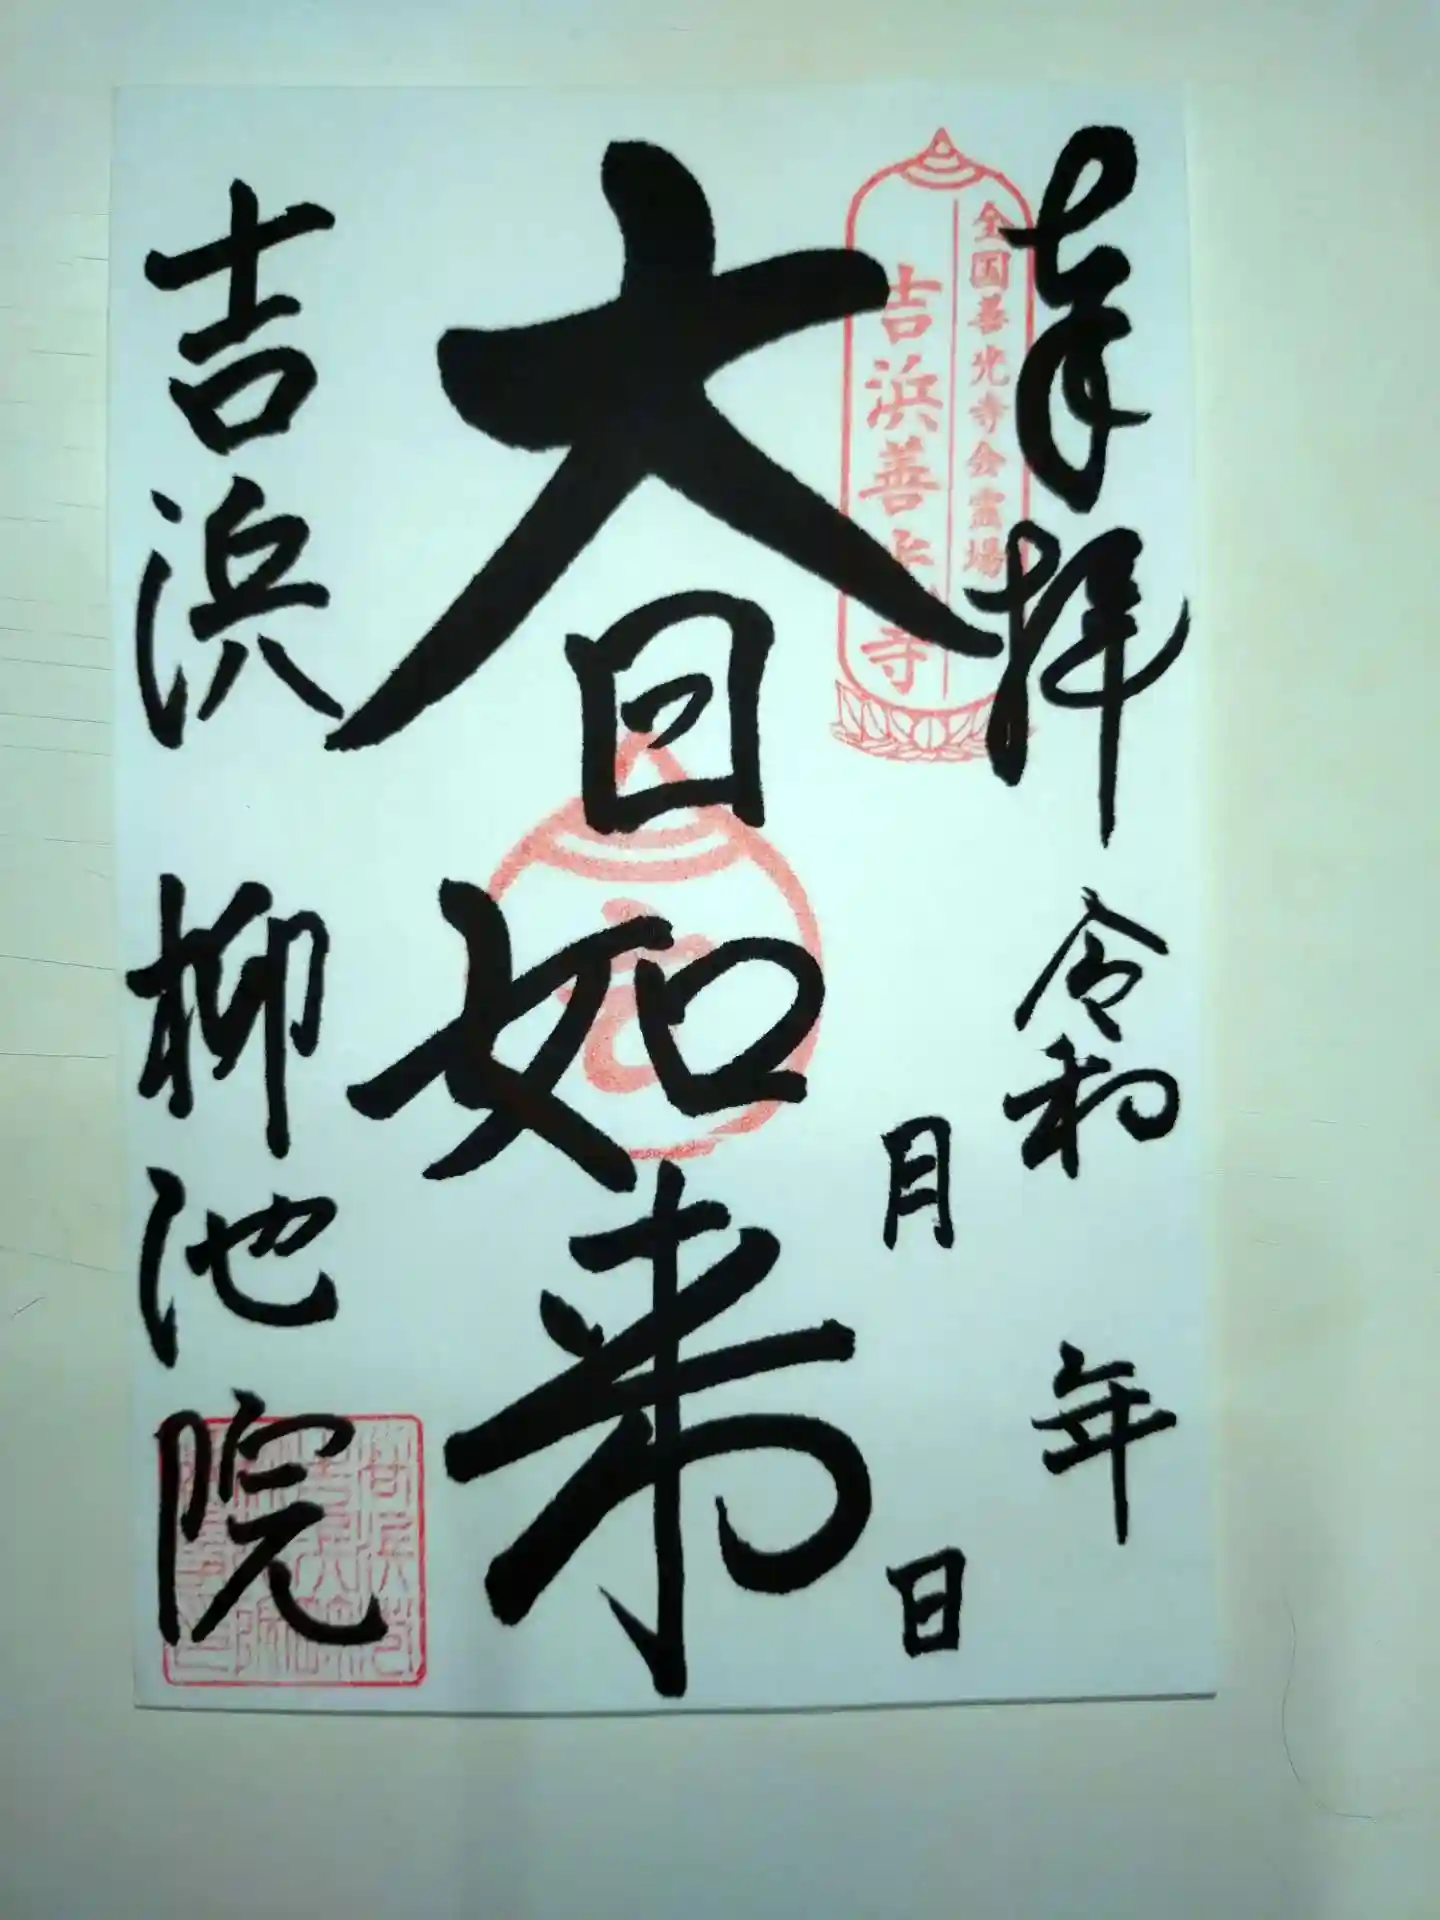 奉拝 令和 年
月 日
全国善光寺会霊場
吉浜善光寺
大日如来
吉浜 柳池院